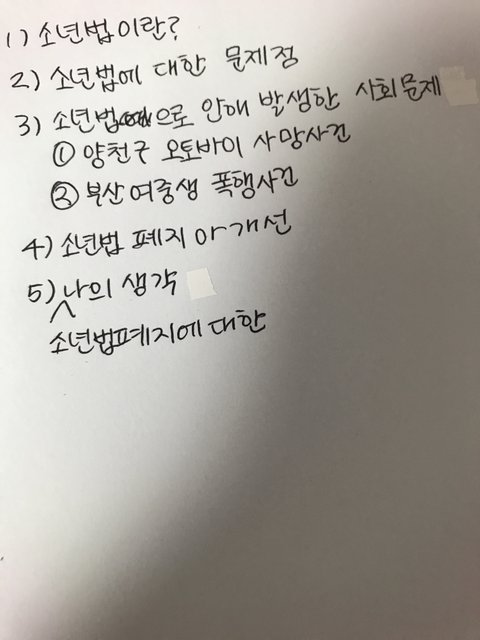 1) 소년법이란?
2) 소년법에 대한 문제점
3) 소년법으로 인해 발생한 사회문제
① 양천구 오토바이 사망사건
② 부산여중생 폭행사건
4) 소년법 폐지 아 개선
5) 나의 생각
소년법폐지에 대한